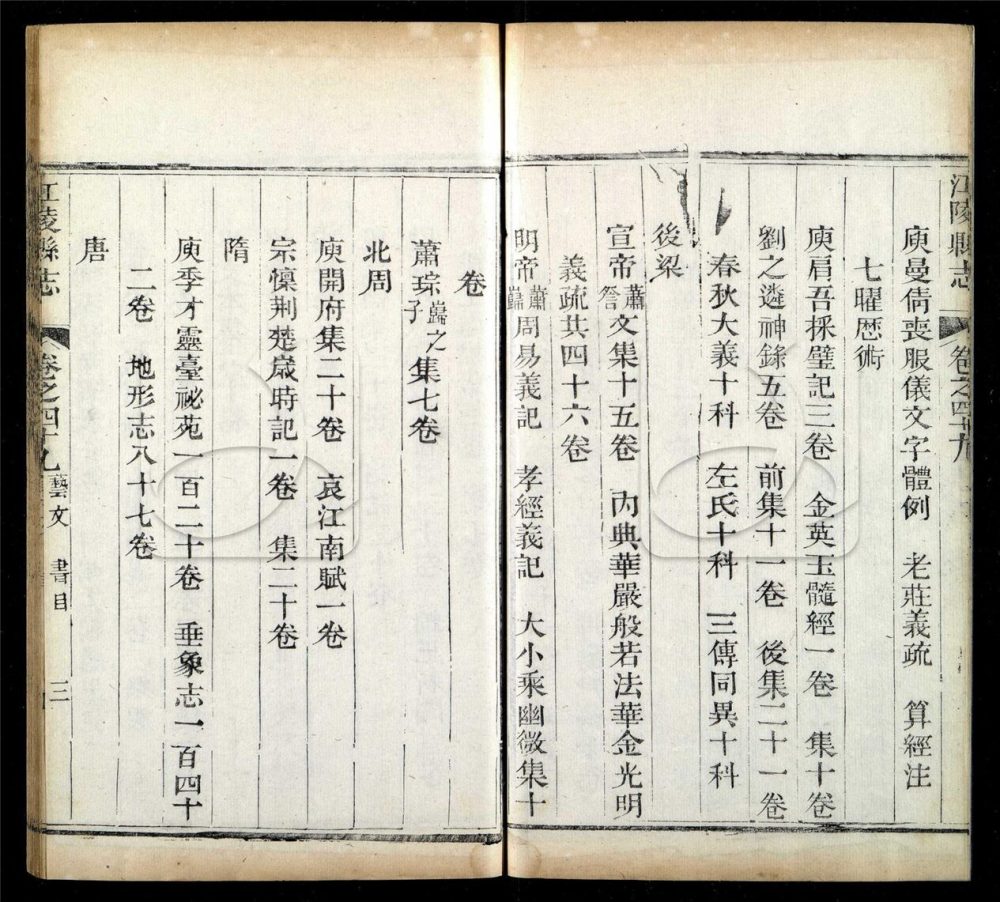 江陵縣志 卷之四十九
庾曼倩喪服儀文字體例 老莊義疏 算經注
七曜歷術
庾肩吾採璧記三卷 金英玉髓經一卷 集十卷
劉之遴神錄五卷 前集十一卷 後集二十一卷
春秋大義十科 左氏十科 三傳同異十科
後梁
宣帝蕭詧文集十五卷 內典華嚴般若法華金光明
義疏共四十六卷
明帝蕭巋周易義記 孝經義記 大小乘幽微集十
卷
蕭琮巋之子集七卷
北周
庾開府集二十卷 哀江南賦一卷
宗懍荆楚歲時記一卷 集二十卷
隋
庾季才靈臺祕苑一百二十卷 垂象志一百四十
二卷 地形志八十七卷
唐
江陵縣志 卷之四十九 藝文 書目 三